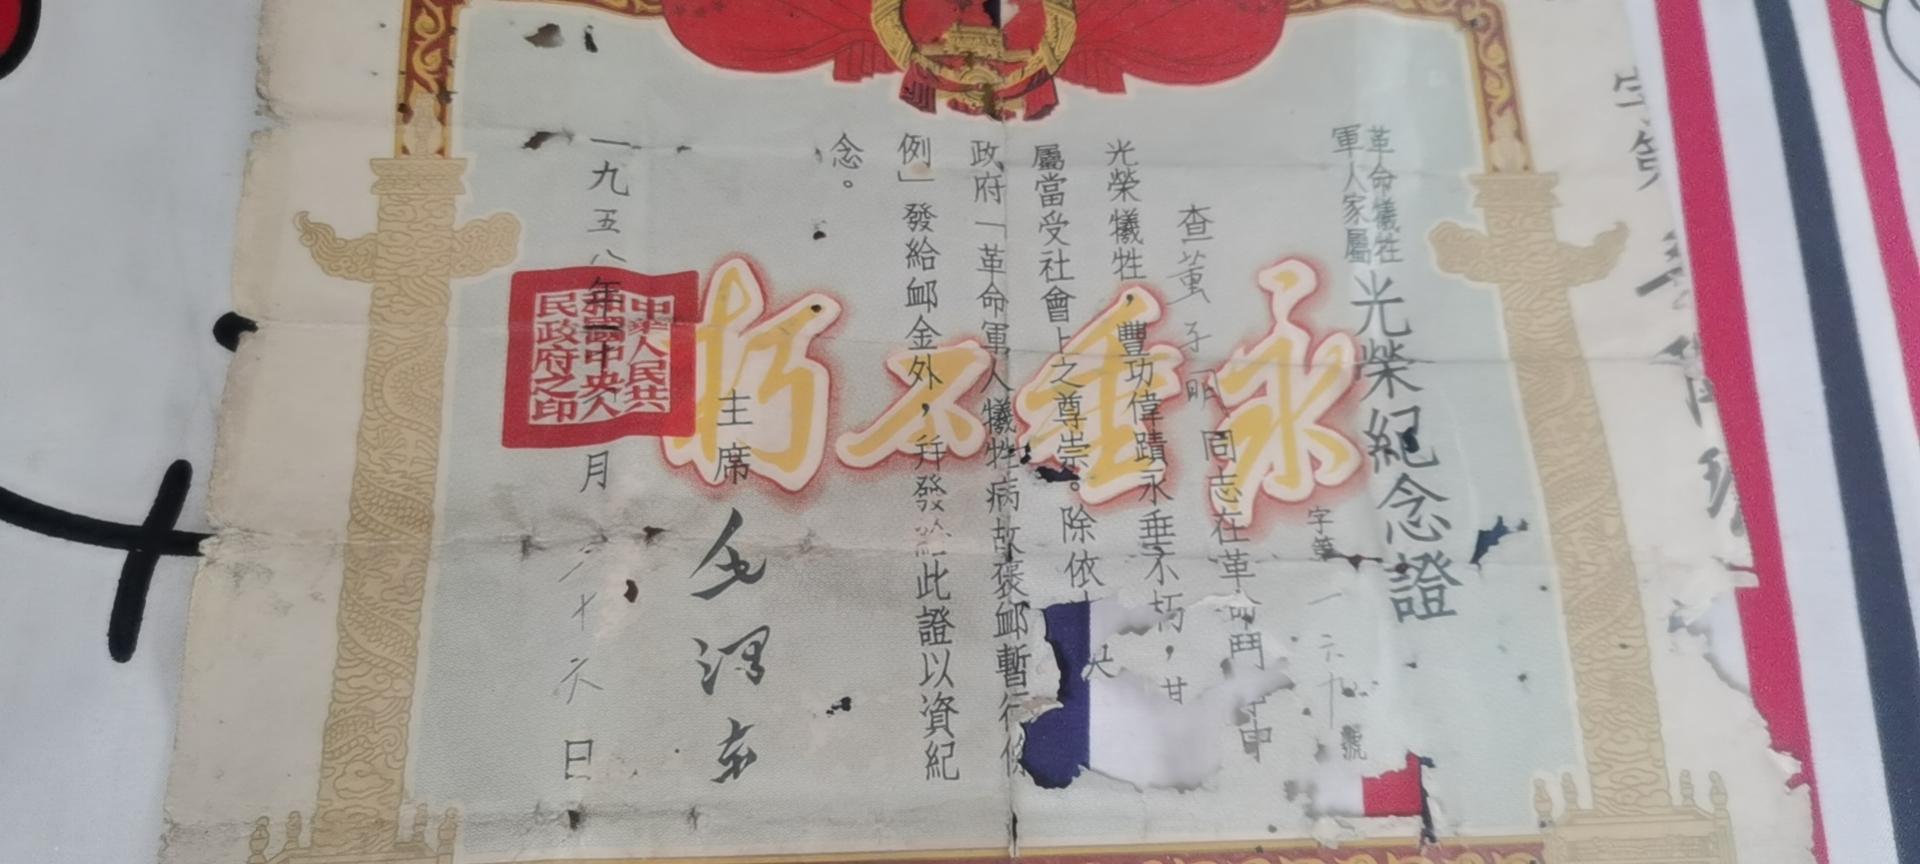 革命犧牲
軍人家屬
光榮紀念證
字第一六九號
查董子明同志在革命鬥爭中
光榮犧牲，豐功偉蹟永垂不朽，其
屬當受社會上之尊崇。除依中央
政府「革命軍人犧牲病故褒卹暫行條
例」發給卹金外，并發給此證以資紀
念。
主席 毛澤東
一九五八年十月二十六日
中華人民共
和國中央人
民政府之印
永垂不朽
字第